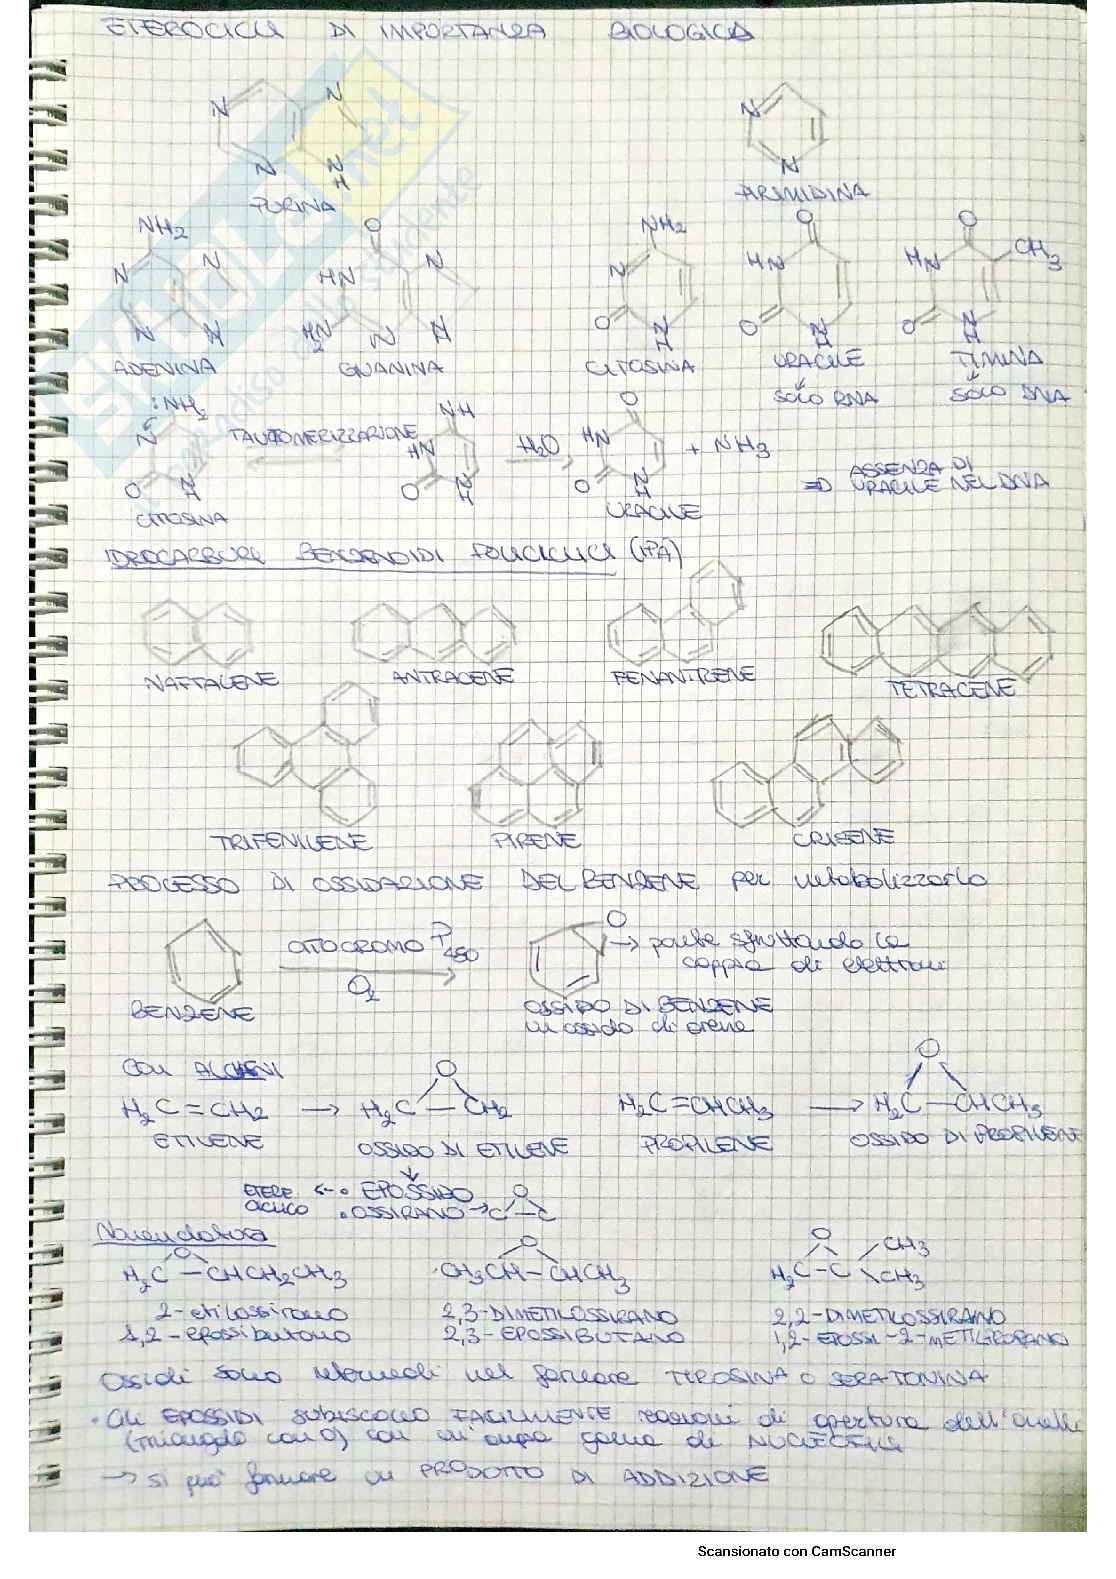 ETEROCICLI DI IMPORTANZA BIOLOGICA
N N
N N
H
PURINA
N
N
PIRIMIDINA
NH2 O NH2 O O
N N HN N N HN HN CH3
N N H2N N N O N O N O N
H H H H H
ADENINA GUANINA CITOSINA URACILE TIMINA
SOLO RNA SOLO DNA
:NH2 NH O
N TAUTOMERIZZAZIONE HN H2O HN + NH3
O N O N O N
H H H
CITOSINA URACILE
⇒ ASSENZA DI
URACILE NEL DNA
IDROCARBURI BENZENOIDI POLICICLICI (IPA)
NAFTALENE ANTRACENE FENANTRENE TETRACENE
TRIFENILENE PIRENE CRISENE
PROCESSO DI OSSIDAZIONE DEL BENZENE per metabolizzarlo
CITOCROMO P450
O2
O
→ ponte sfruttando la
coppia di elettroni
BENZENE OSSIDO DI BENZENE
un ossido di arene
Con ALCHENI
O O
H2C=CH2 → H2C—CH2 H2C=CHCH3 → H2C—CHCH3
ETILENE OSSIDO DI ETILENE PROPILENE OSSIDO DI PROPILENE
ETERE CICLICO ← • EPOSSIDO
• OSSIRANO → C—C
O
Nomenclatura
O O O CH3
H2C—CHCH2CH3 CH3CH—CHCH3 H2C—C CH3
2-etilossirano 2,3-DIMETILOSSIRANO 2,2-DIMETILOSSIRANO
1,2-epossibutano 2,3-EPOSSIBUTANO 1,2-EPOSSI-2-METILPROPANO
Ossidi sono intermedi nel formare TIROSINA o SERATONINA
• Gli EPOSSIDI subiscono FACILMENTE reazioni di apertura dell'anello
(triangolo con O) con un'ampia gamma di NUCLEOFILI
→ si può formare un PRODOTTO DI ADDIZIONE
SKUOLA.net
Scansionato con CamScanner